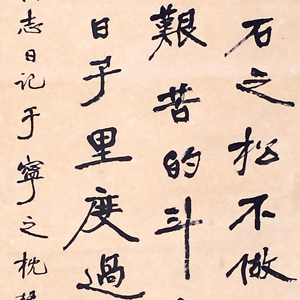 石之松不做
艱苦的斗
日子里度過
志日记于寧之枕